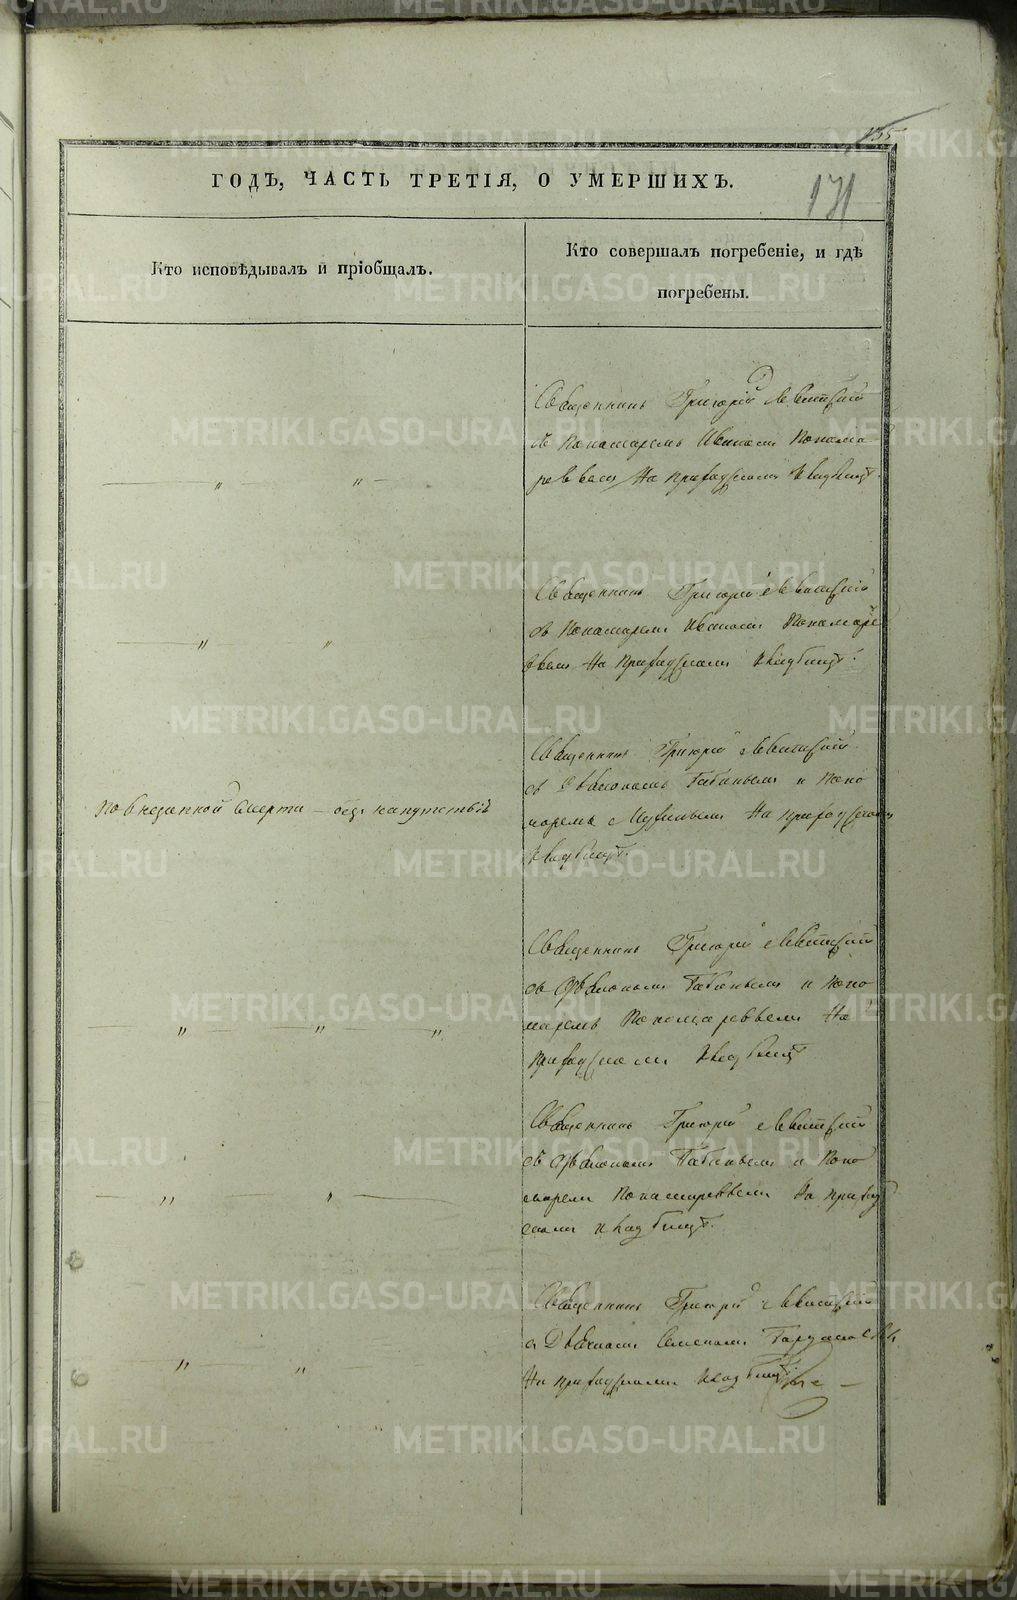 135
ГОДЪ, ЧАСТЬ ТРЕТІЯ, О УМЕРШИХЪ.
131
Кто исповѣдывалъ и пріобщалъ.
Кто совершалъ погребеніе, и гдѣ
погребены.
Священникъ Григорій Левитскій
съ Пономаремъ Иваномъ Понома
ревымъ На приходскомъ кладбищѣ.
Священникъ Григорій Левитскій
съ Пономаремъ Иваномъ Пономаре
вымъ На приходскомъ кладбищѣ.
По внезапной смерти – безъ напутствія
Священникъ Григорій Левитскій
съ Діакономъ и Поно
маремъ На приходскомъ
кладбищѣ.
Священникъ Григорій Левитскій
съ Діакономъ и Поно
маремъ Пономаревымъ На
приходскомъ кладбищѣ
Священникъ Григорій Левитскій
съ Діакономъ и Поно
маремъ Пономаревымъ На приход
скомъ кладбищѣ.
Священникъ Григорій Левитскій
На приходскомъ кладбищѣ
METRIKI.GASO-URAL.RU